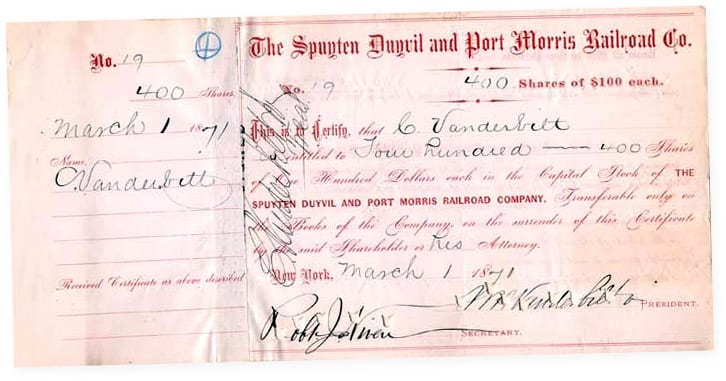 No. 19
4
400 Shares
March 1 1871
Name,
C. Vanderbilt
Received Certificate as above described
The Spuyten Duyvil and Port Morris Railroad Co.
No. 19 400 Shares of $100 each.
This is to Certify, that C. Vanderbilt
is entitled to Four Hundred 400 Shares
of One Hundred Dollars each in the Capital Stock of THE
SPUYTEN DUYVIL AND PORT MORRIS RAILROAD COMPANY. Transferable only on
the Books of the Company, on the surrender of this Certificate
by the said Shareholder or his Attorney.
New York, March 1 1871
Wm. K. Vanderbilt PRESIDENT.
SECRETARY.